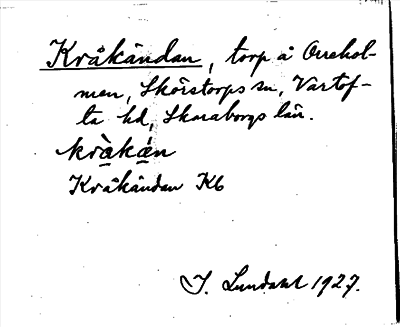 Kråkändan, torp å Orrehol-
men, Skörstorps sn, Vartof-
ta hd, Skaraborgs län.
kràkán
Kråkändan K6
J. Lundahl 1927.